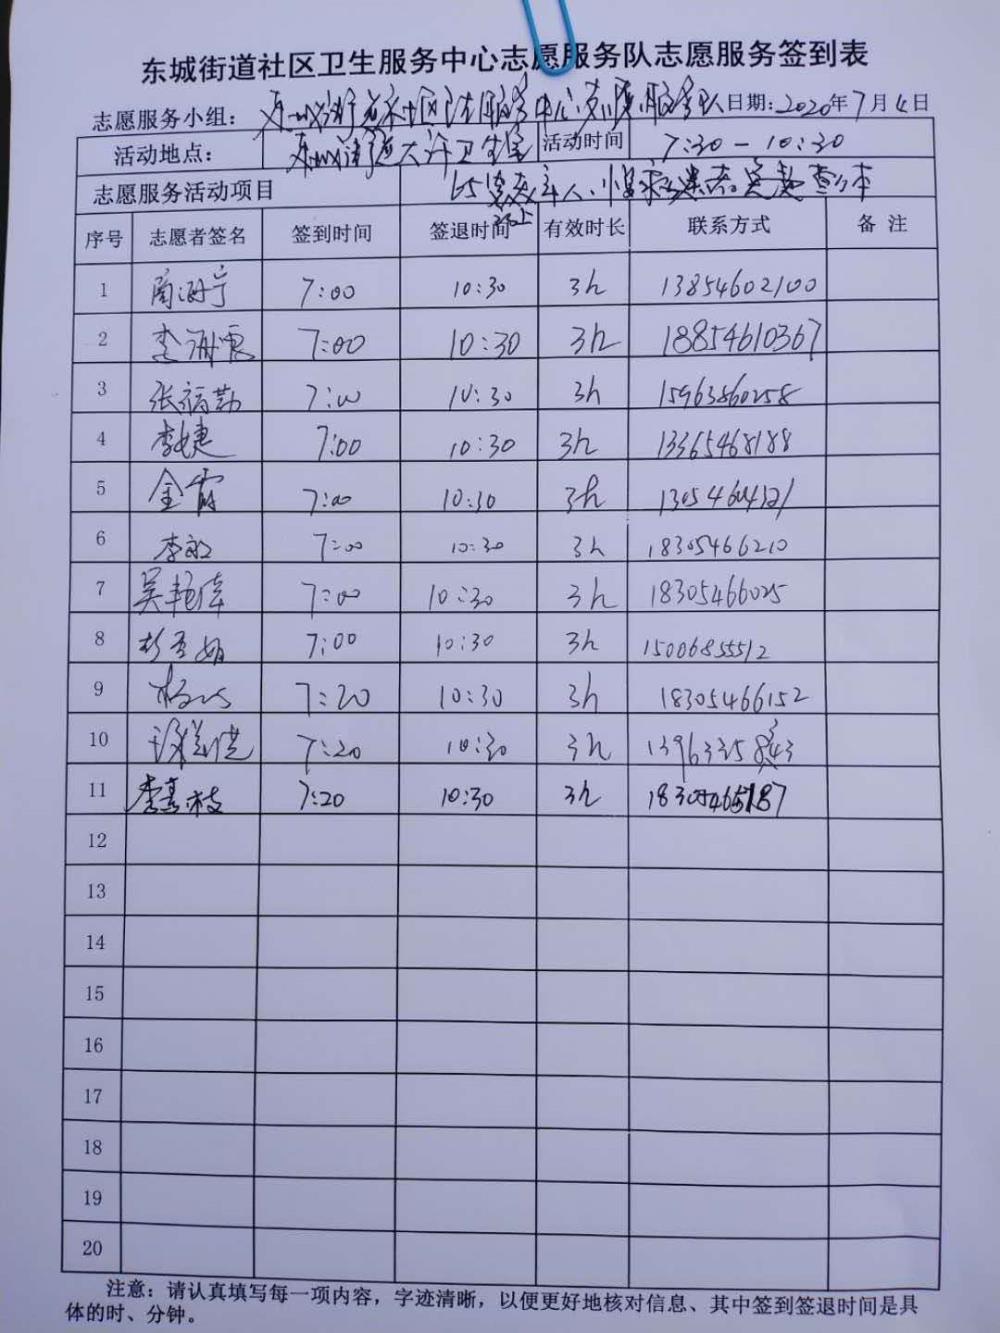 东城街道社区卫生服务中心志愿服务队志愿服务签到表
志愿服务小组：东城街道社区卫生服务中心志愿服务队 日期：2020年7月4日
活动地点： 东城街道大许卫生室 活动时间 7:30-10:30
志愿服务活动项目 65岁以上老年人、慢病患者免费查体
序号 志愿者签名 签到时间 签退时间 有效时长 联系方式 备 注
1 7:00 10:30 3h 13854602100
2 7:00 10:30 3h 18854610367
3 张福勤 7:00 10:30 3h 15963860258
4 李婕 7:00 10:30 3h 13365468188
5 金霞 7:00 10:30 3h 13054604321
6 李 7:00 10:30 3h 18305466210
7 吴艳萍 7:00 10:30 3h 18305466025
8 7:00 10:30 3h 15006855512
9 7:20 10:30 3h 18305466152
10 7:20 10:30 3h
11 李喜枝 7:20 10:30 3h 18305465187
12
13
14
15
16
17
18
19
20
注意：请认真填写每一项内容，字迹清晰，以便更好地核对信息、其中签到签退时间是具
体的时、分钟。